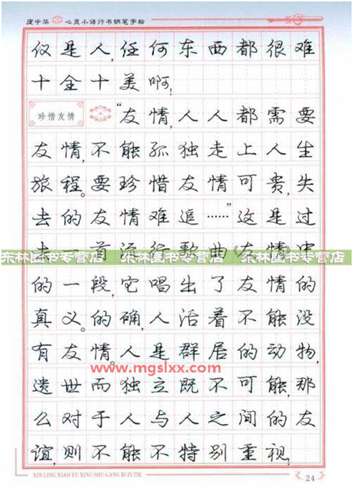 庹中华 心灵小语行书钢笔字帖
仅是人,任何东西都很难
十全十美啊!
珍惜友情 "友情,人人都需要
友情,不能孤独走上人生
旅程。要珍惜友情可贵,失
去的友情难追……"这是过
去一首流行歌曲《友情》中
东林图书专营店 东林图书专营店 东林图书专营店
的一段,它唱出了友情的
真义。的确,人活着不能没
有友情,人是群居的动物,
www.mgslxx.com
遗世而独立既不可能,那
么对于人与人之间的友
谊,则不能不特别重视,
XINLING XIAO YU XING SHU GANG BI ZI TIE
24